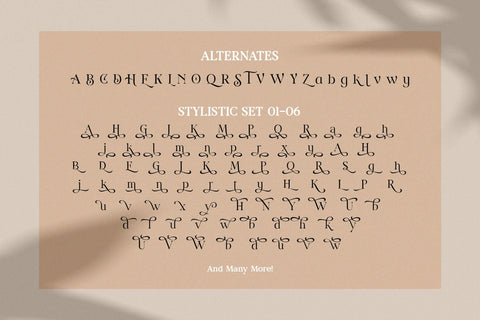 ALTERNATES
A B C D H F K I N O Q R S T V W Y Z a b g k l v w y
STYLISTIC SET 01-06
A H G J K M P Q R a g h
j k l m n p r x y A H
B D E G L K M P Q R S g h
j k m n p r l y H L K I P R
u v w x y H N Y W U h
d l u v w b d h k y
U V W b d u v w
And Many More!